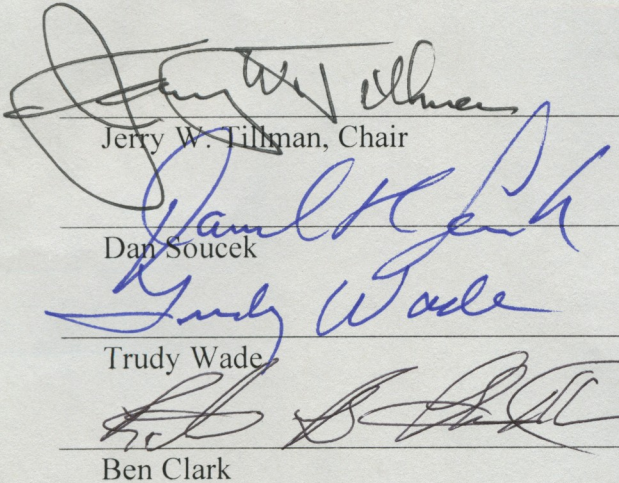 Jerry W. Tillman
Jerry W. Tillman, Chair
Daniel
Dan Soucek
Trudy Wade
Trudy Wade
Ben Clark